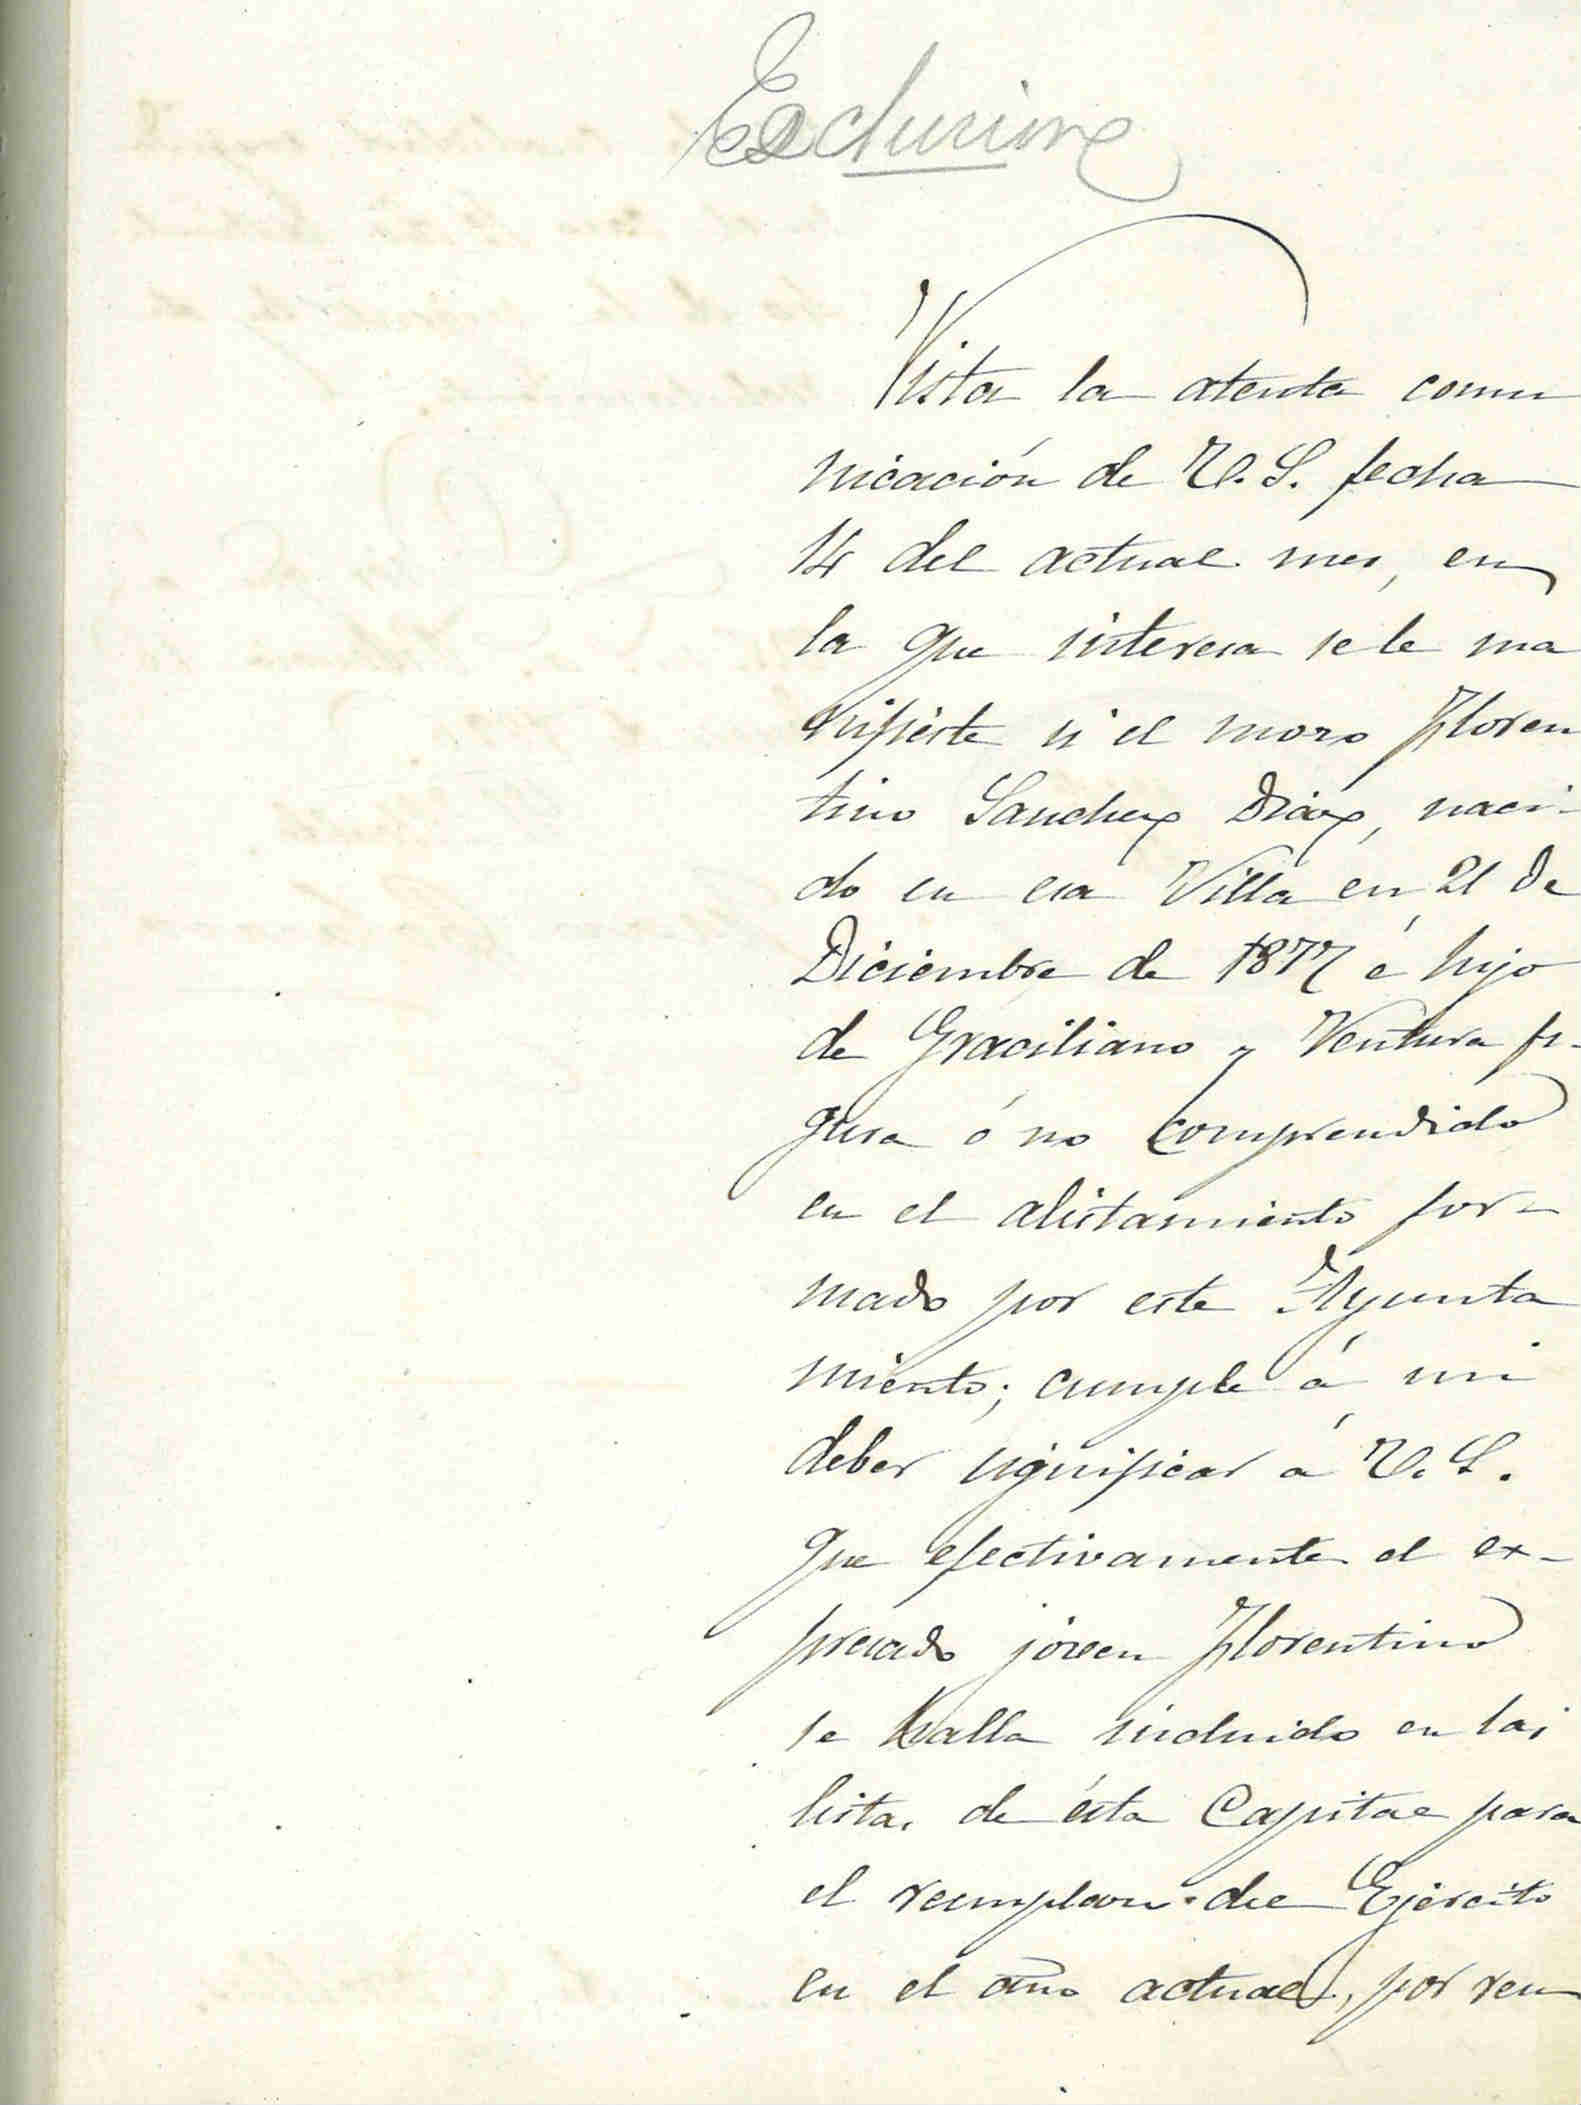 Exclusione
Vista la atenta comu
nicación de V. S. fecha
14 del actual mes, en
la que interesa se le ma
nifieste si el mozo Floren
tino Sanchez Diaz, naci-
do en esa Villa en 21 de
Diciembre de 1877 é hijo
de Graciliano y Ventura fi-
gura ó no comprendido
en el alistamiento for-
mado por este Ayunta
miento; cumple á mi
deber significar á V. S.
que efectivamente el ex-
presado jóven Florentino
se halla incluido en las
listas de ésta Capital para
el reemplazo del Ejército
en el año actual, por reu